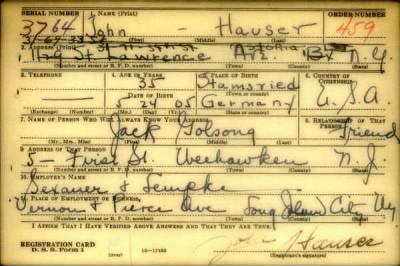 SERIAL NUMBER 1. NAME (Print) ORDER NUMBER
3764 John - Hauser 459
(First) (Middle) (Last)
2. ADDRESS (Print)
1170 St. Lawrence Ave. Bx N.Y.
(Number and street or R. F. D. number) (Town) (County) (State)
3. TELEPHONE 4. AGE IN YEARS 5. PLACE OF BIRTH 6. COUNTRY OF CITIZENSHIP
35 Stamsried
DATE OF BIRTH (Town or county)
5 24 05 Germany U.S.A
(Exchange) (Number) (Mo.) (Day) (Yr.) (State or country)
7. NAME OF PERSON WHO WILL ALWAYS KNOW YOUR ADDRESS 8. RELATIONSHIP OF THAT PERSON
Jack Golsong Friend
(Mr., Mrs., Miss) (First) (Middle) (Last)
9. ADDRESS OF THAT PERSON
5 - First St. Weehawken N.J.
(Number and street or R. F. D. number) (Town) (County) (State)
10. EMPLOYER'S NAME
Sexauer & Lempke
11. PLACE OF EMPLOYMENT OR BUSINESS
Vernon & Pierce Ave Long Island City NY
(Number and street or R. F. D. number) (Town) (County) (State)
I AFFIRM THAT I HAVE VERIFIED ABOVE ANSWERS AND THAT THEY ARE TRUE.
REGISTRATION CARD
D. S. S. Form 1 16-17105
John Hauser